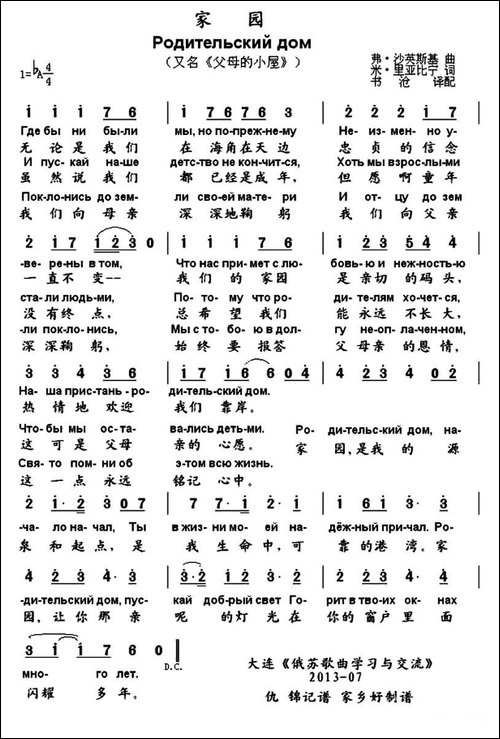 家 园
Родительский дом
(又名《父母的小屋》)
1=♭A 4/4
弗·沙英斯基 曲
米·里亚比宁 词
书 沧 译配
i i i 7 6 | i i i 2 3 7 6 | 2 2 2 i 7
Где бы ни были мы, но по-преж-не-му Не-из-мен-но у-
无 论 是 我们 在 海角 在 天 边 忠 贞 的 信念
И пус-кай на-ше детс-тво не кон-чит-ся, Хоть мы взрос-лы-ми
虽 然 说 我们 都 已经 是 成 年, 但 愿 啊 童年
Пок-ло-нись до зем- ли сво-ей ма-те-ри И от-цу до зем
我 们 向 母亲 深 深地 鞠 躬 我 们 向 父亲
-ве-ре-ны в том, Что нас при-мет с лю- бовь-ю и неж-ность-ю
一 直 不 变-- 我 们 的 家园 是 亲切 的 码 头,
ста-ли людь-ми, По-то-му что ро- ди-те-лям хо-чет-ся,
没 有 终 点, 总 希 望 我们 能 永远 不 长 大,
-ли пок-ло-нись, Мы с то-бо-ю в дол- гу не-оп-ла-чен-ном,
深 深 鞠 躬, 始 终 要 报答 父 母亲 的 恩 情,
3 3 4 3 6
На-ша прис-тань-ро- ди-тель-ский дом.
热 情 地 欢迎 我们 靠岸。
Что-бы мы ос-та- ва-лись деть-ми. Ро- ди-тельс-кий дом, на-
这 可 是 父母 亲的 心愿。 家 园,是 我 的 源
Свя-то пом-ни об э-том всю жизнь.
这 一 点 永远 铭记 心中。
-ча-ло на-чал, Ты в жиз-ни мо-ей на- дёж-ный при-чал. Ро-
泉 和 起 点, 是 我 生 命 中, 可 靠 的 港 湾。家
-ди-тельский дом, пус- кай доб-рый свет Го- рит в тво-их ок-нах
园, 让 你 那 亲 呢 的 灯 光 在 你的 窗 户 里 面
3 i i 7 6 0 D.C.
мно- го лет.
闪耀 多 年。
大连《俄苏歌曲学习与交流》
2013-07
仇 锦记谱 家乡好制谱